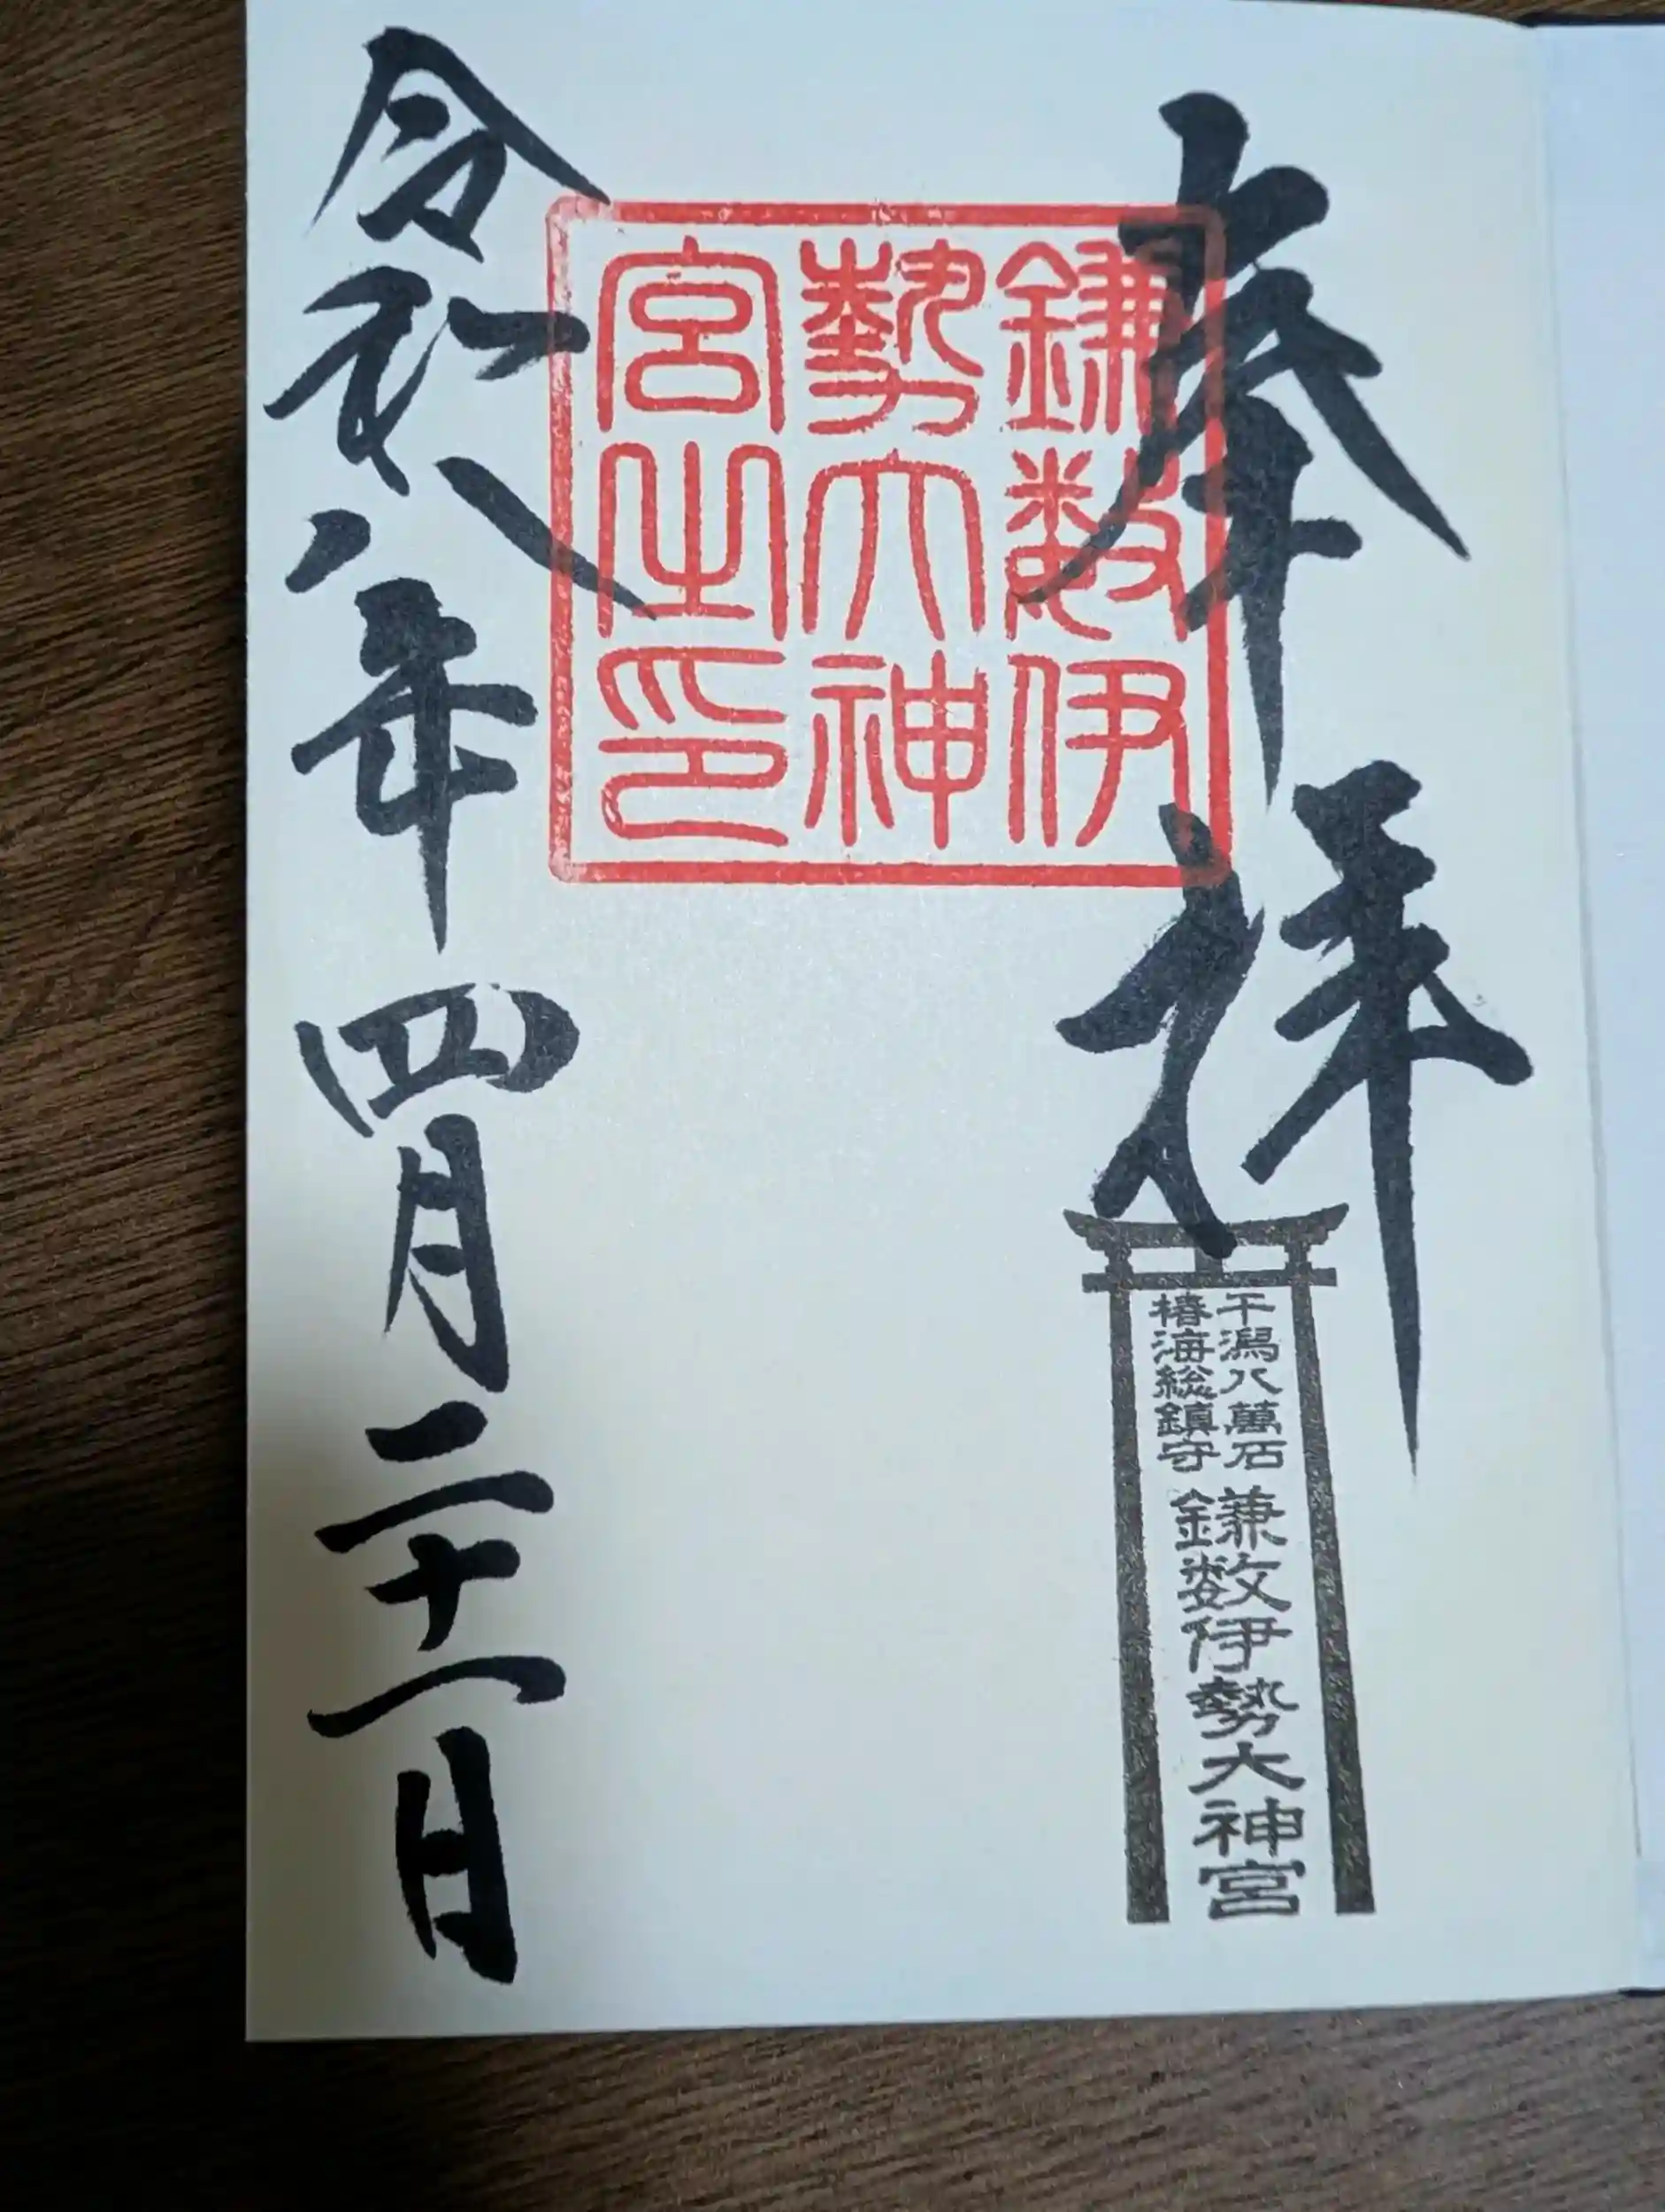 奉拝
鎌数伊
勢大神
宮之印
干潟八萬石
椿海総鎮守
鎌数伊勢大神宮
令和八年四月二十一日